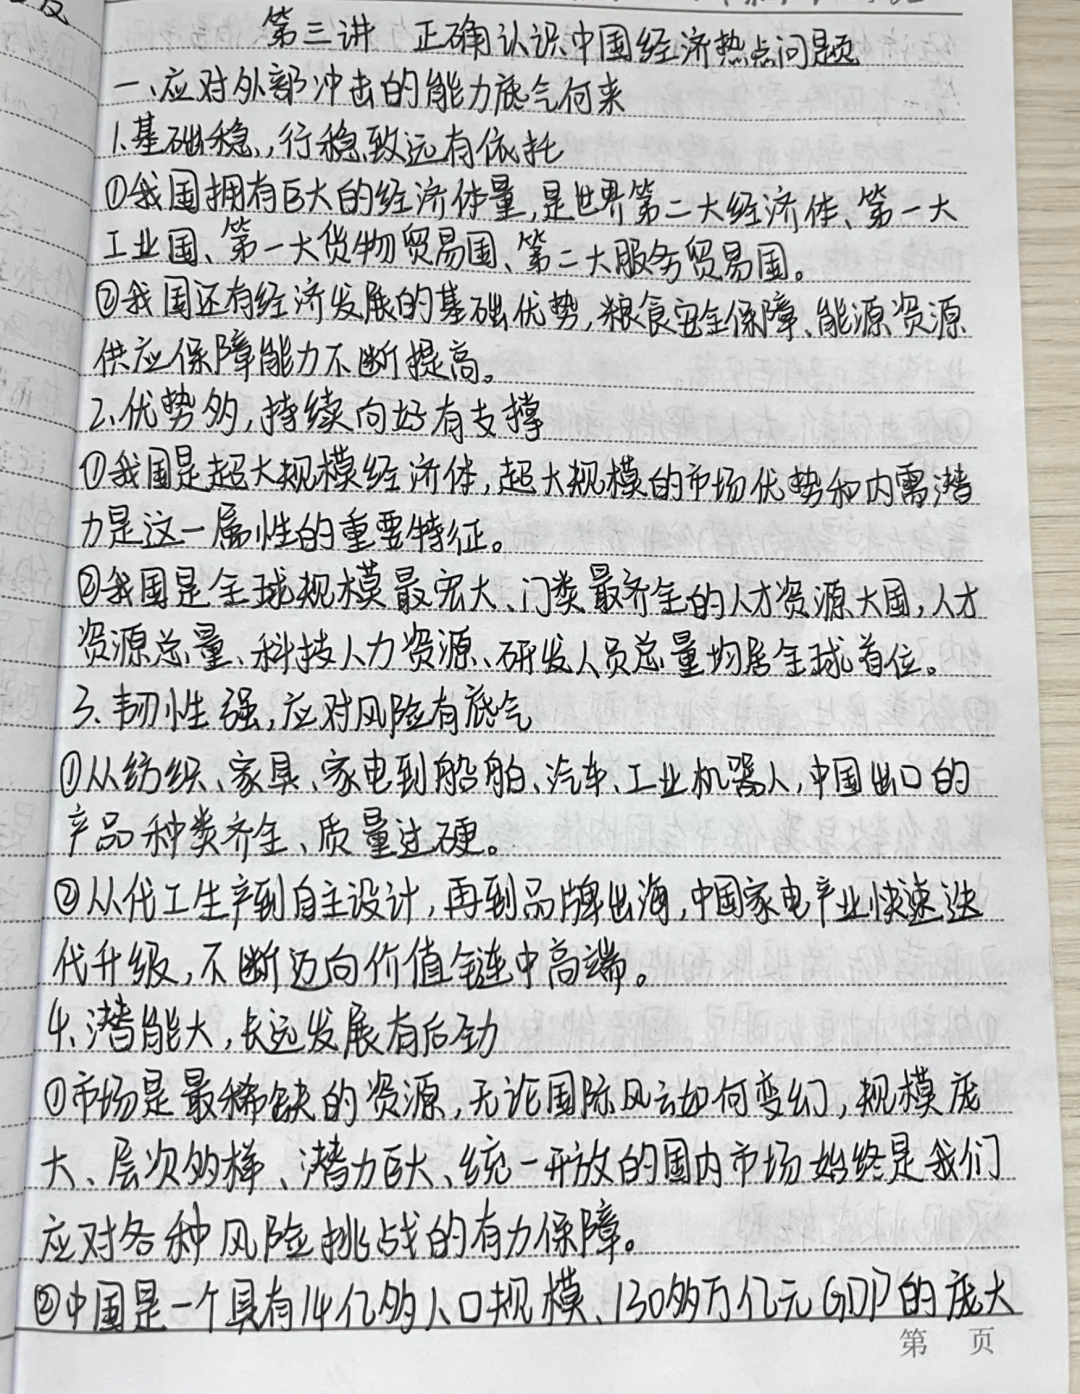 第三讲 正确认识中国经济热点问题
一、应对外部冲击的能力底气何来
1.基础稳,行稳致远有依托
①我国拥有巨大的经济体量,是世界第二大经济体、第一大
工业国、第一大货物贸易国、第二大服务贸易国。
②我国还有经济发展的基础优势,粮食安全保障、能源资源
供应保障能力不断提高。
2.优势多,持续向好有支撑
①我国是超大规模经济体,超大规模的市场优势和内需潜
力是这一属性的重要特征。
②我国是全球规模最宏大、门类最齐全的人才资源大国,人才
资源总量、科技人力资源、研发人员总量均居全球首位。
3、韧性强,应对风险有底气
①从纺织、家具、家电到船舶、汽车、工业机器人,中国出口的
产品种类齐全、质量过硬。
②从代工生产到自主设计,再到品牌出海,中国家电产业快速迭
代升级,不断迈向价值链中高端。
4、潜能大,长远发展有后劲
①市场是最稀缺的资源,无论国际风云如何变幻,规模庞
大、层次多样、潜力巨大、统一开放的国内市场始终是我们
应对各种风险挑战的有力保障。
②中国是一个具有14亿多人口规模、130多万亿元GDP的庞大
第 页